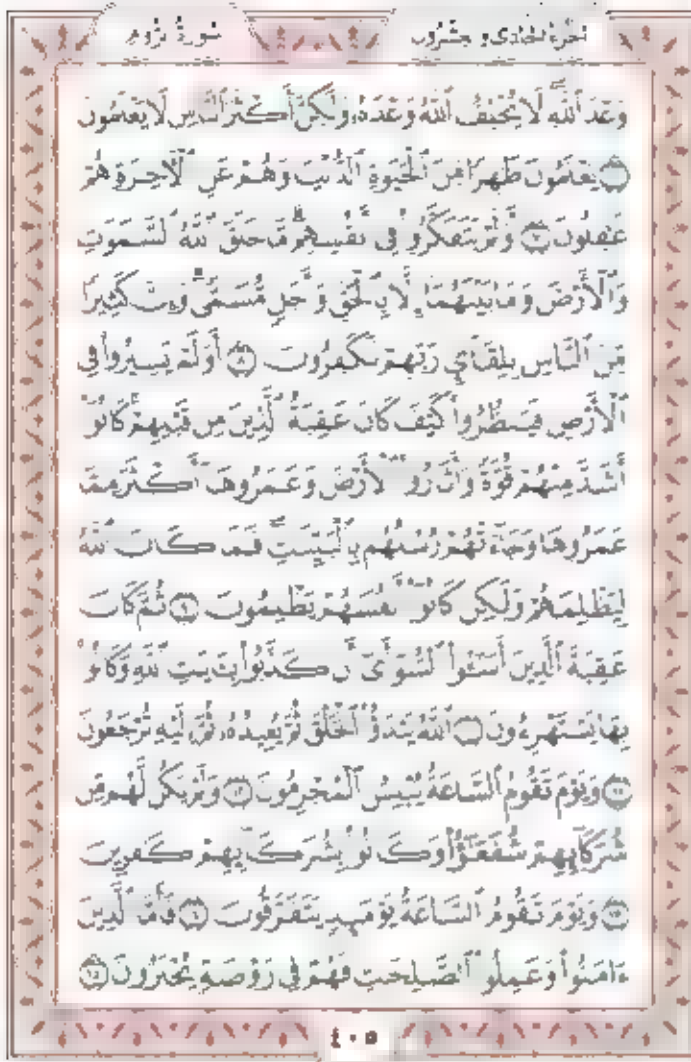 سورة الروم
الجزء الحادي والعشرون
وَعْدَ ٱللَّهِ لَا يُخْلِفُ ٱللَّهُ وَعْدَهُۥ وَلَٰكِنَّ أَكْثَرَ ٱلنَّاسِ لَا يَعْلَمُونَ
۝٦ يَعْلَمُونَ ظَٰهِرًا مِّنَ ٱلْحَيَوٰةِ ٱلدُّنْيَا وَهُمْ عَنِ ٱلْءَاخِرَةِ هُمْ
غَٰفِلُونَ ۝٧ أَوَلَمْ يَتَفَكَّرُوا۟ فِىٓ أَنفُسِهِم مَّا خَلَقَ ٱللَّهُ ٱلسَّمَٰوَٰتِ
وَٱلْأَرْضَ وَمَا بَيْنَهُمَآ إِلَّا بِٱلْحَقِّ وَأَجَلٍ مُّسَمًّى وَإِنَّ كَثِيرًا
مِّنَ ٱلنَّاسِ بِلِقَآئِ رَبِّهِمْ لَكَٰفِرُونَ ۝٨ أَوَلَمْ يَسِيرُوا۟ فِى
ٱلْأَرْضِ فَيَنظُرُوا۟ كَيْفَ كَانَ عَٰقِبَةُ ٱلَّذِينَ مِن قَبْلِهِمْ كَانُوٓا۟
أَشَدَّ مِنْهُمْ قُوَّةً وَأَثَارُوا۟ ٱلْأَرْضَ وَعَمَرُوهَآ أَكْثَرَ مِمَّا
عَمَرُوهَا وَجَآءَتْهُمْ رُسُلُهُم بِٱلْبَيِّنَٰتِ فَمَا كَانَ ٱللَّهُ
لِيَظْلِمَهُمْ وَلَٰكِن كَانُوٓا۟ أَنفُسَهُمْ يَظْلِمُونَ ۝٩ ثُمَّ كَانَ
عَٰقِبَةَ ٱلَّذِينَ أَسَٰٓـُٔوا۟ ٱلسُّوٓأَىٰٓ أَن كَذَّبُوا۟ بِـَٔايَٰتِ ٱللَّهِ وَكَانُوا۟
بِهَا يَسْتَهْزِءُونَ ۝١٠ ٱللَّهُ يَبْدَؤُا۟ ٱلْخَلْقَ ثُمَّ يُعِيدُهُۥ ثُمَّ إِلَيْهِ تُرْجَعُونَ
۝١١ وَيَوْمَ تَقُومُ ٱلسَّاعَةُ يُبْلِسُ ٱلْمُجْرِمُونَ ۝١٢ وَلَمْ يَكُن لَّهُم مِّن
شُرَكَآئِهِمْ شُفَعَٰٓؤُا۟ وَكَانُوا۟ بِشُرَكَآئِهِمْ كَٰفِرِينَ
۝١٣ وَيَوْمَ تَقُومُ ٱلسَّاعَةُ يَوْمَئِذٍ يَتَفَرَّقُونَ ۝١٤ فَأَمَّا ٱلَّذِينَ
ءَامَنُوا۟ وَعَمِلُوا۟ ٱلصَّٰلِحَٰتِ فَهُمْ فِى رَوْضَةٍ يُحْبَرُونَ ۝١٥
٤٠٥